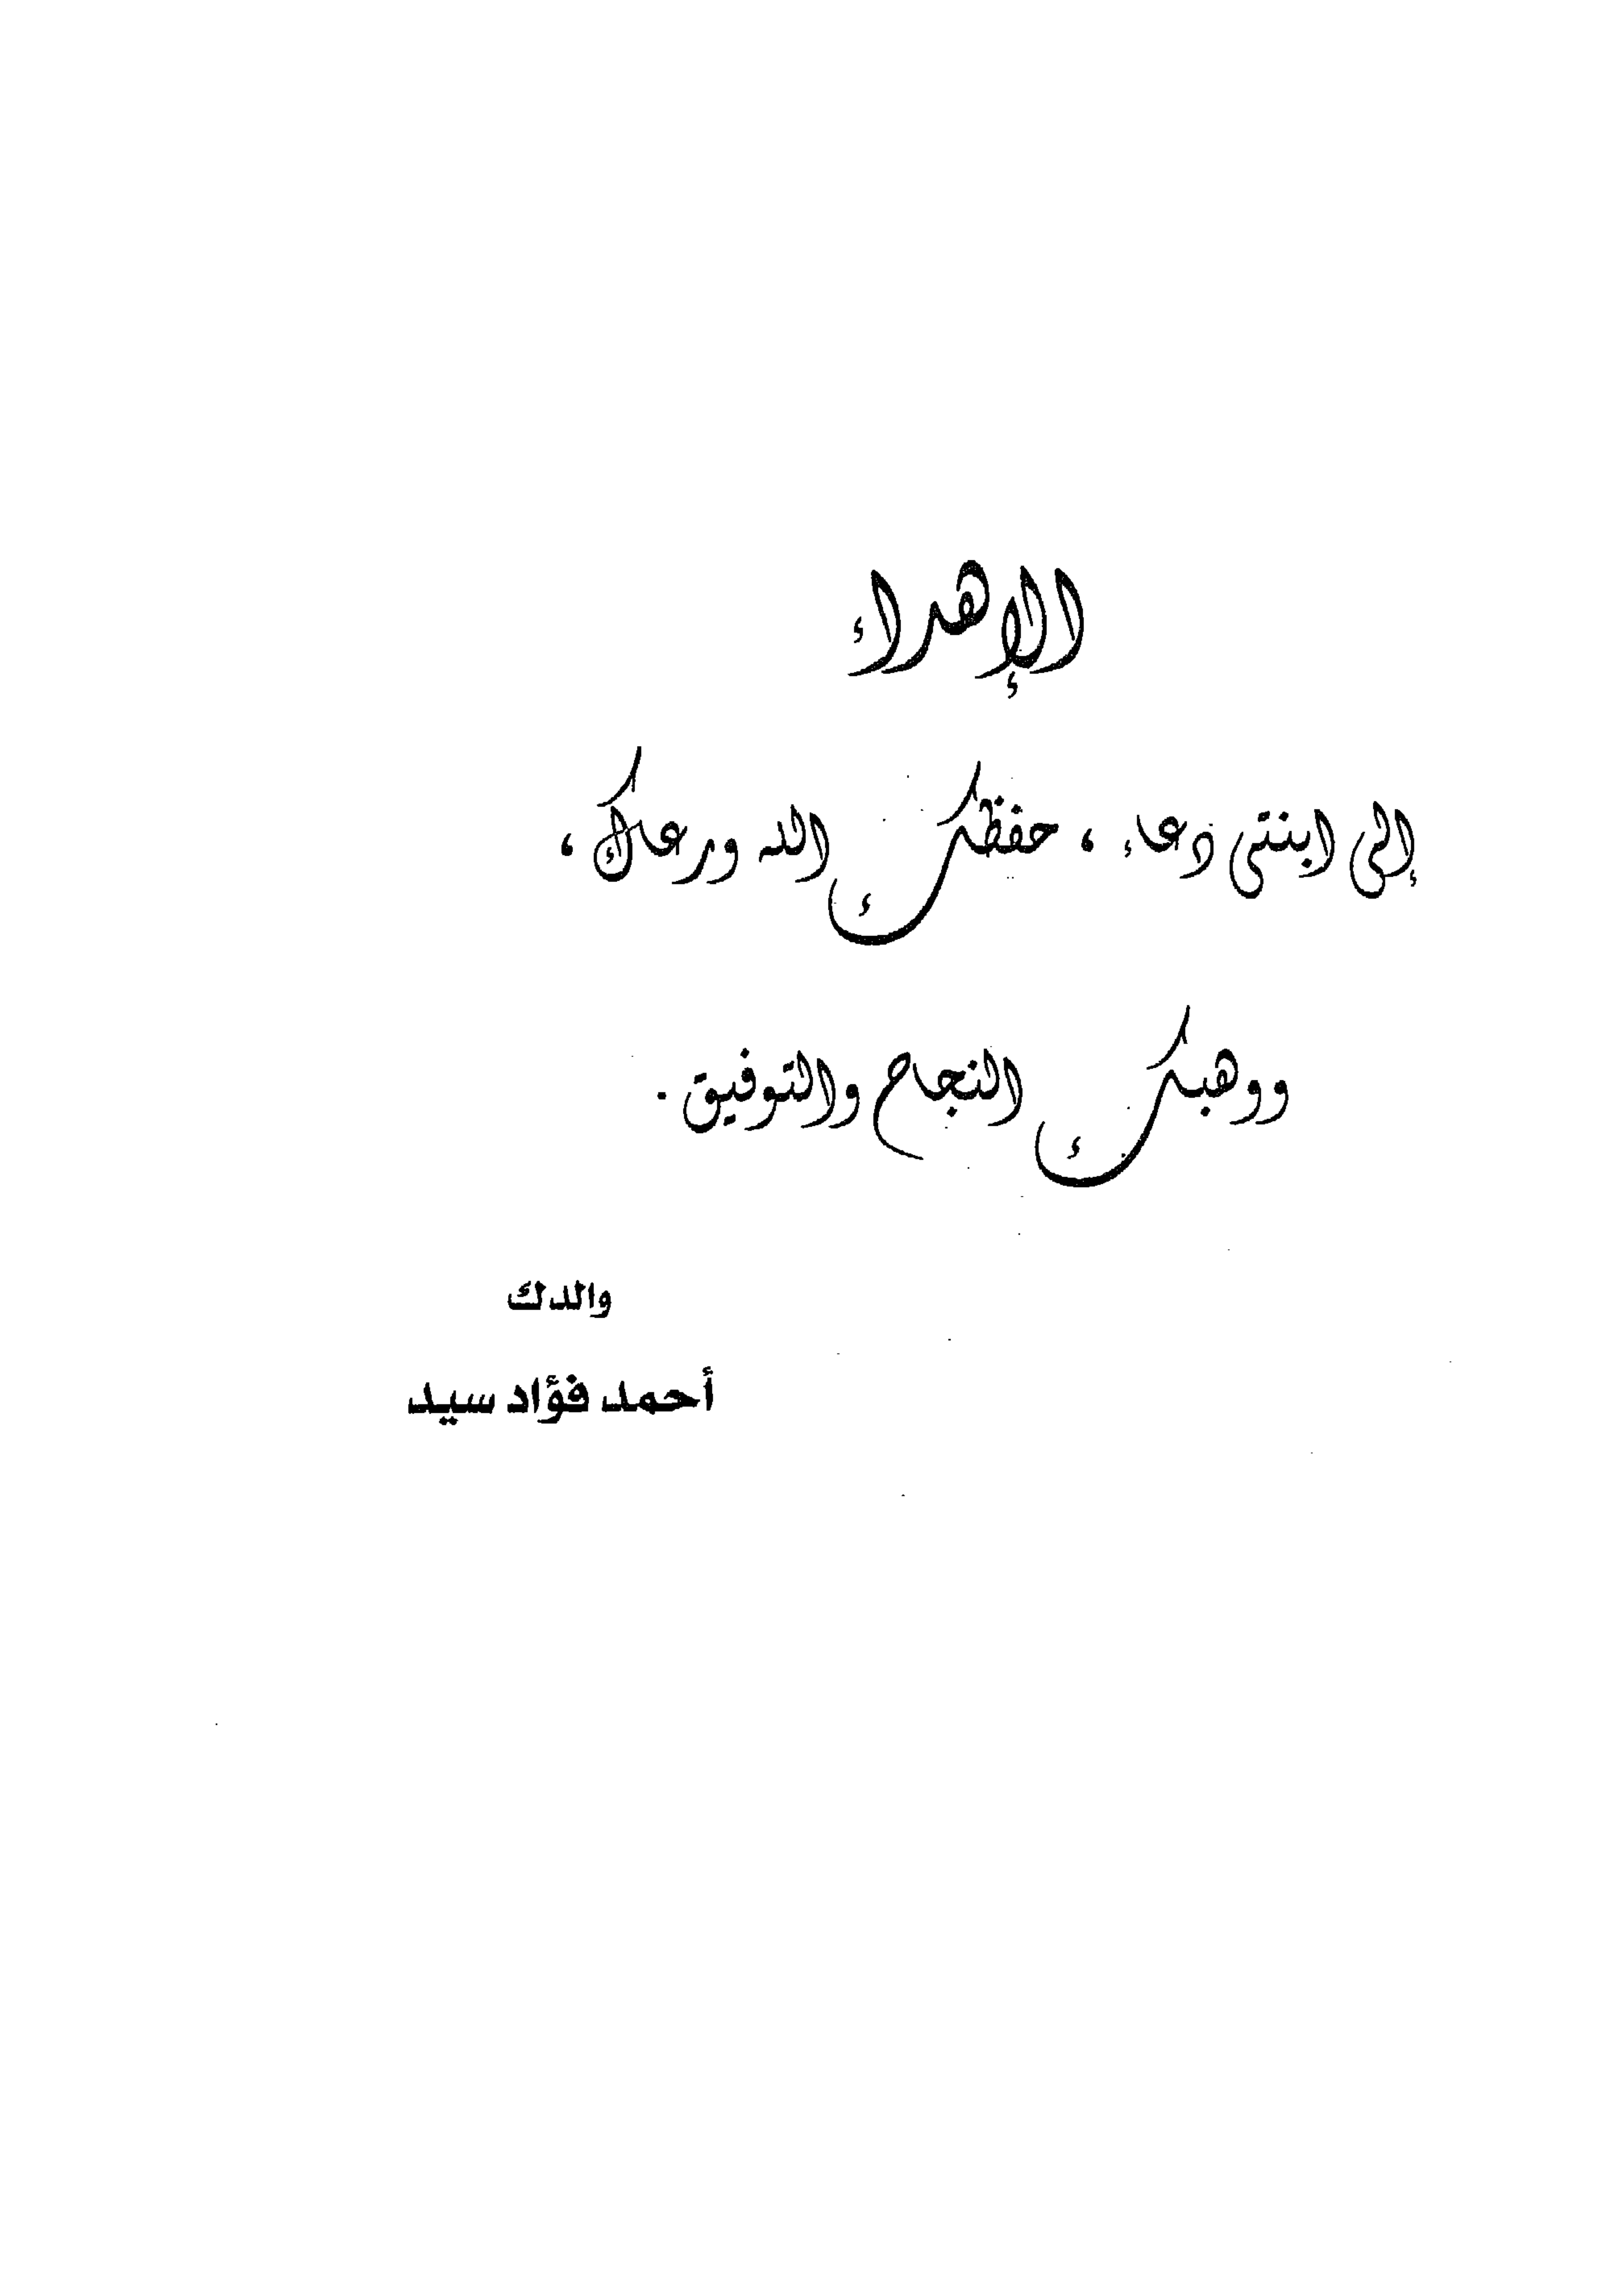 الإهداء
إلى ابنتى دعاء ، حفظك الله ورعاك ،
ووهبك النجاح والتوفيق .
والدك
أحمد فؤاد سيد